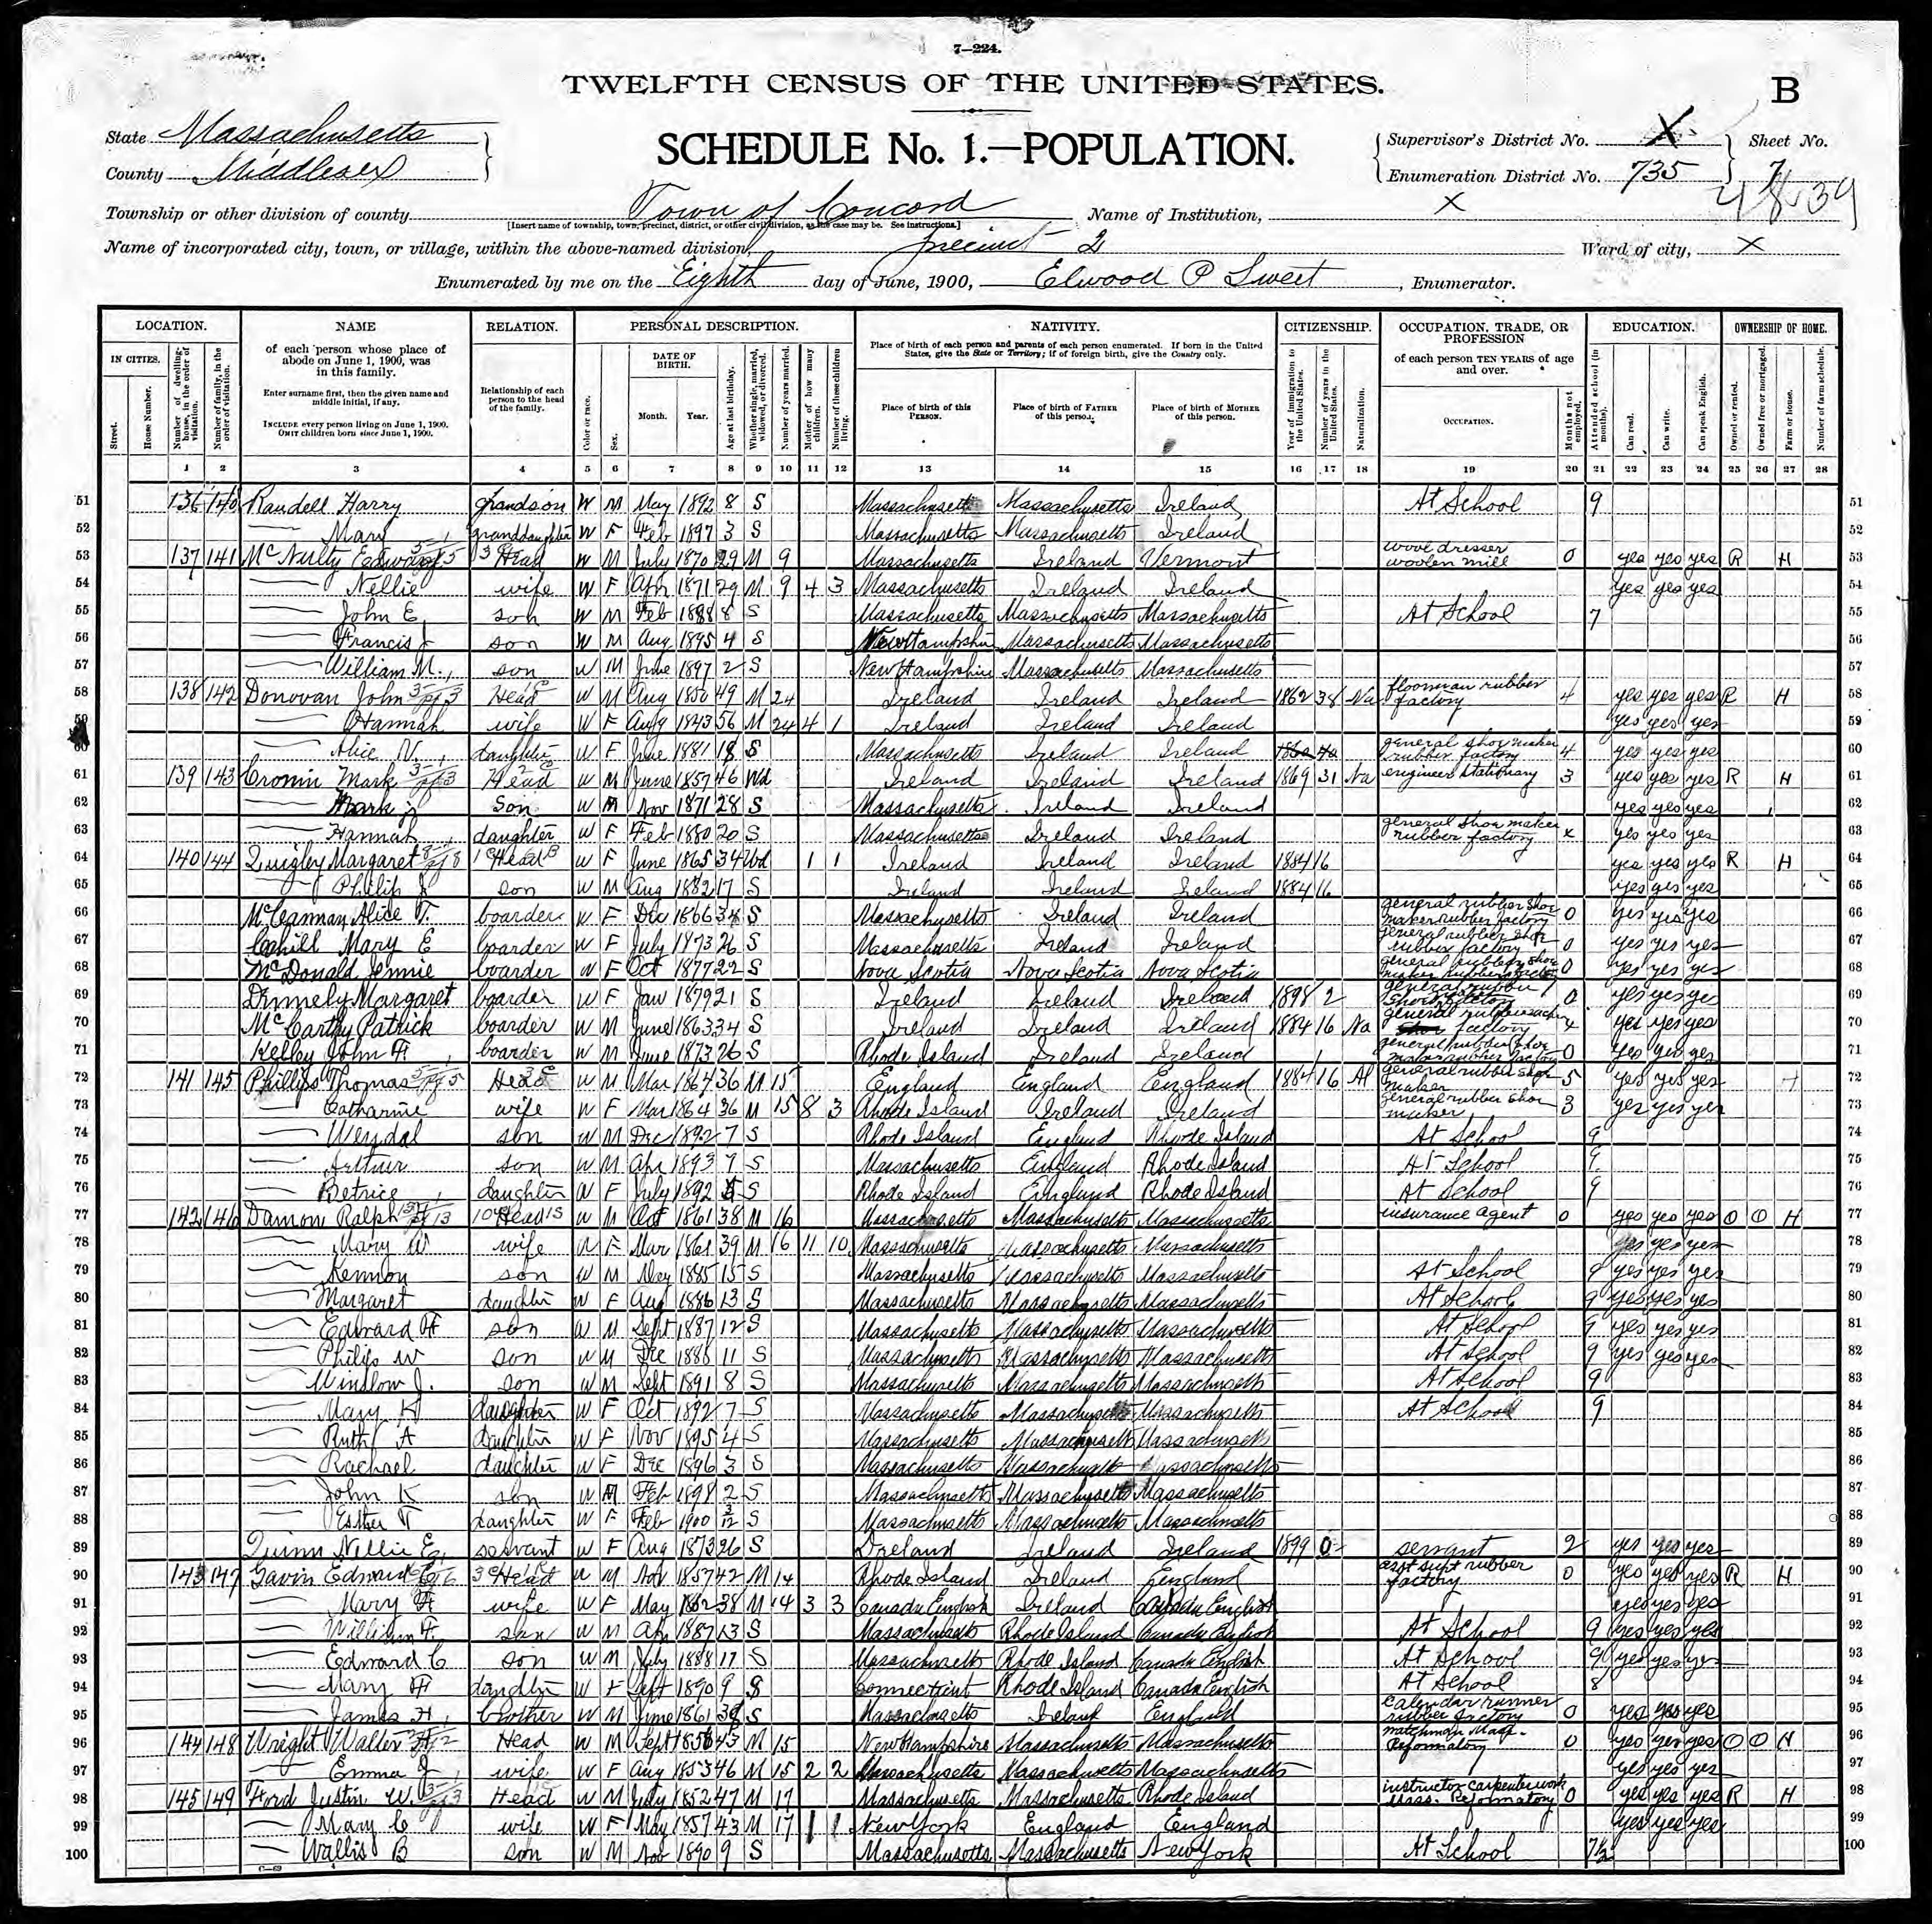 7—224.
TWELFTH CENSUS OF THE UNITED STATES.
B
State Massachusetts
County Middlesex
SCHEDULE No. 1.—POPULATION.
Supervisor's District No. X
Enumeration District No. 735
Sheet No.
7
Township or other division of county Town of Concord
[Insert name of township, town, precinct, district, or other civil division, as the case may be. See instructions.]
Name of Institution, X
Name of incorporated city, town, or village, within the above-named division, precinct 2
Ward of city, X
Enumerated by me on the Eighth day of June, 1900, Elwood P Sweet, Enumerator.
LOCATION. NAME RELATION. PERSONAL DESCRIPTION. NATIVITY. CITIZENSHIP. OCCUPATION, TRADE, OR PROFESSION EDUCATION. OWNERSHIP OF HOME.
IN CITIES.
Street.
House Number.
Number of dwelling-house, in the order of visitation.
Number of family, in the order of visitation.
of each person whose place of abode on June 1, 1900, was in this family.
Enter surname first, then the given name and middle initial, if any.
INCLUDE every person living on June 1, 1900. OMIT children born since June 1, 1900.
Relationship of each person to the head of the family.
Color or race.
Sex.
DATE OF BIRTH.
Month. Year.
Age at last birthday.
Whether single, married, widowed, or divorced.
Number of years married.
Mother of how many children.
Number of these children living.
Place of birth of each person and parents of each person enumerated. If born in the United States, give the State or Territory; if of foreign birth, give the Country only.
Place of birth of this PERSON.
Place of birth of FATHER of this person.
Place of birth of MOTHER of this person.
Year of immigration to the United States.
Number of years in the United States.
Naturalization.
of each person TEN YEARS of age and over.
OCCUPATION.
Months not employed.
Attended school (in months).
Can read.
Can write.
Can speak English.
Owned or rented.
Owned free or mortgaged.
Farm or house.
Number of farm schedule.
1 2 3 4 5 6 7 8 9 10 11 12 13 14 15 16 17 18 19 20 21 22 23 24 25 26 27 28
51 136 140 Randell Harry grandson W M May 1892 8 S Massachusetts Massachusetts Ireland At School 9 51
52 Mary granddaughter W F Feb 1897 3 S Massachusetts Massachusetts Ireland 52
53 137 141 McNulty Edward Head W M July 1870 29 M 9 Massachusetts Ireland Vermont wool dresser woolen mill 0 yes yes yes R H 53
54 Nellie wife W F Apr 1871 29 M 9 4 3 Massachusetts Ireland Ireland yes yes yes 54
55 John E, son W M Feb 1888 8 S Massachusetts Massachusetts Massachusetts At School 7 55
56 Francis J son W M Aug 1895 4 S New Hampshire Massachusetts Massachusetts 56
57 William M. son W M June 1897 2 S New Hampshire Massachusetts Massachusetts 57
58 138 142 Donovan John Head W M Aug 1850 49 M 24 Ireland Ireland Ireland 1862 38 Na floorman rubber factory 4 yes yes yes R H 58
59 Hannah wife W F Aug 1843 56 M 24 4 1 Ireland Ireland Ireland yes yes yes 59
60 Alice N. daughter W F June 1881 18 S Massachusetts Ireland Ireland general shoe maker rubber factory 4 yes yes yes 60
61 139 143 Cronin Mark Head W M June 1857 46 Wd Ireland Ireland Ireland 1869 31 Na engineer stationary 3 yes yes yes R H 61
62 Mark Jr Son W M Nov 1871 28 S Massachusetts Ireland Ireland yes yes yes 62
63 Hannah daughter W F Feb 1880 20 S Massachusetts Ireland Ireland general shoe maker rubber factory x yes yes yes 63
64 140 144 Quigley Margaret Head W F June 1865 34 Wd 1 1 Ireland Ireland Ireland 1884 16 yes yes yes R H 64
65 Philip J son W M Aug 1882 17 S Ireland Ireland Ireland 1884 16 yes yes yes 65
66 Alice T. boarder W F Dec 1866 34 S Massachusetts Ireland Ireland general rubber shoe maker rubber factory 0 yes yes yes 66
67 Cahill Mary E boarder W F July 1873 26 S Massachusetts Ireland Ireland general rubber shoe rubber factory 0 yes yes yes 67
68 McDonald Jennie boarder W F Oct 1877 22 S Nova Scotia Nova Scotia Nova Scotia general rubber shoe maker rubber factory 0 yes yes yes 68
69 Margaret boarder W F Jan 1879 21 S Ireland Ireland Ireland 1898 2 general rubber 0 yes yes yes 69
70 McCarthy Patrick boarder W M June 1863 34 S Ireland Ireland Ireland 1884 16 Na general rubber factory 4 yes yes yes 70
71 Kelley John H boarder W M June 1873 26 S Rhode Island Ireland Ireland general rubber shoe maker rubber factory 0 yes yes yes 71
72 141 145 Phillips Thomas Head W M Mar 1864 36 M 15 England England England 1884 16 Al general rubber shoe maker 5 yes yes yes H 72
73 Catharine wife W F Mar 1864 36 M 15 8 3 Rhode Island Ireland Ireland general rubber shoe maker 3 yes yes yes 73
74 Wendal son W M Dec 1892 7 S Rhode Island England Rhode Island At School 9 74
75 Arthur son W M Apr 1893 7 S Massachusetts England Rhode Island At School 9 75
76 Betrice daughter W F July 1892 S Rhode Island England Rhode Island At School 9 76
77 142 146 Damon Ralph H Head W M Oct 1861 38 M 16 Massachusetts Massachusetts Massachusetts insurance agent 0 yes yes yes O O H 77
78 Mary W wife W F Mar 1861 39 M 16 11 10 Massachusetts Massachusetts Massachusetts yes yes yes 78
79 Kennon son W M May 1885 15 S Massachusetts Massachusetts Massachusetts At School 9 yes yes yes 79
80 Margaret daughter W F Aug 1886 13 S Massachusetts Massachusetts Massachusetts At School 9 yes yes yes 80
81 Edward H son W M Sept 1887 12 S Massachusetts Massachusetts Massachusetts At School 9 yes yes yes 81
82 Philip W son W M Dec 1888 11 S Massachusetts Massachusetts Massachusetts At School 9 yes yes yes 82
83 Winslow J. son W M Sept 1891 8 S Massachusetts Massachusetts Massachusetts At School 9 83
84 Mary K daughter W F Oct 1892 7 S Massachusetts Massachusetts Massachusetts At School 9 84
85 Ruth A daughter W F Nov 1895 4 S Massachusetts Massachusetts Massachusetts 85
86 Rachael daughter W F Dec 1896 3 S Massachusetts Massachusetts Massachusetts 86
87 John K son W M Feb 1898 2 S Massachusetts Massachusetts Massachusetts 87
88 Esther T daughter W F Feb 1900 3/12 S Massachusetts Massachusetts Massachusetts 88
89 Quinn Nellie E, servant W F Aug 1873 26 S Ireland Ireland Ireland 1899 0 servant 2 yes yes yes 89
90 143 147 Gavin Edward Head W M Nov 1857 42 M 14 Rhode Island Ireland England asst supt rubber factory 0 yes yes yes R H 90
91 Mary H wife W F May 1862 38 M 14 3 3 Canada English Ireland Canada English yes yes yes 91
92 William F. son W M Apr 1887 13 S Massachusetts Rhode Island Canada English At School 9 yes yes yes 92
93 Edward C son W M July 1888 11 S Massachusetts Rhode Island Canada English At School 9 yes yes yes 93
94 Mary H daughter W F Sept 1890 9 S Connecticut Rhode Island Canada English At School 8 94
95 James H, brother W M June 1861 38 S Massachusetts Ireland England Calendar runner rubber factory 0 yes yes yes 95
96 144 148 Wright Walter Head W M Sept 1856 43 M 15 New Hampshire Massachusetts Massachusetts watchman Mass. Reformatory 0 yes yes yes O O H 96
97 Emma J wife W F Aug 1853 46 M 15 2 2 Massachusetts Massachusetts Massachusetts yes yes yes 97
98 145 149 Ford Justin W. Head W M July 1852 47 M 17 Massachusetts Massachusetts Rhode Island instructor carpenter work Mass. Reformatory 0 yes yes yes R H 98
99 Mary C wife W F May 1857 43 M 17 1 1 New York England England yes yes yes 99
100 Wallis B son W M Nov 1890 9 S Massachusetts Massachusetts New York At School 7½ 100